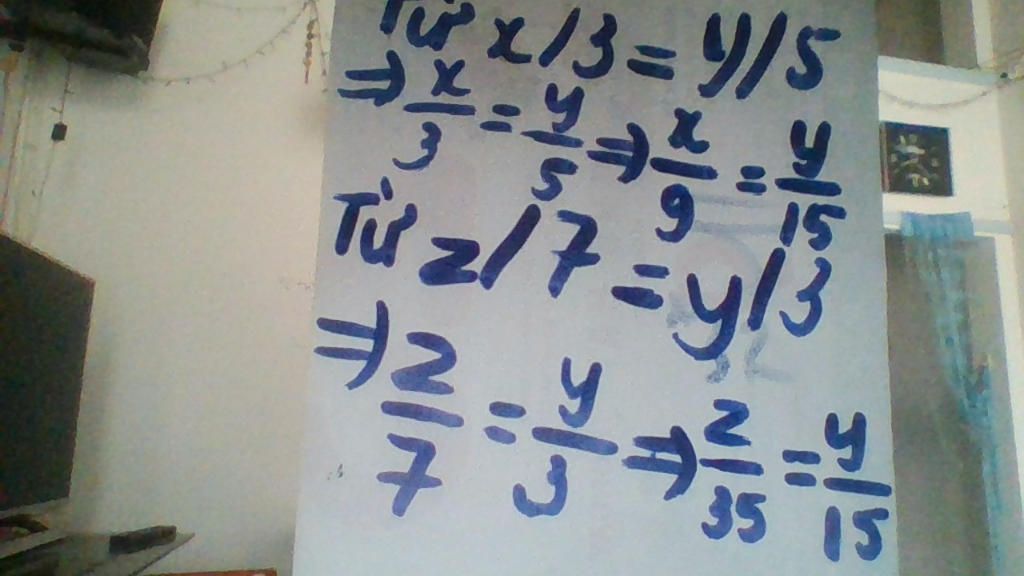 Từ x/3 = y/5
⇒ x/3 = y/5 ⇒ x/9 = y/15
Từ z/7 = y/3
⇒ z/7 = y/3 ⇒ z/35 = y/15